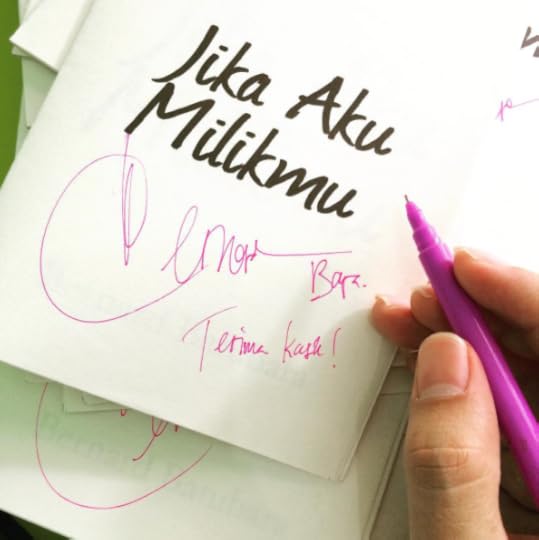 Jika Aku
Milikmu
Bara.
Terima kasih!